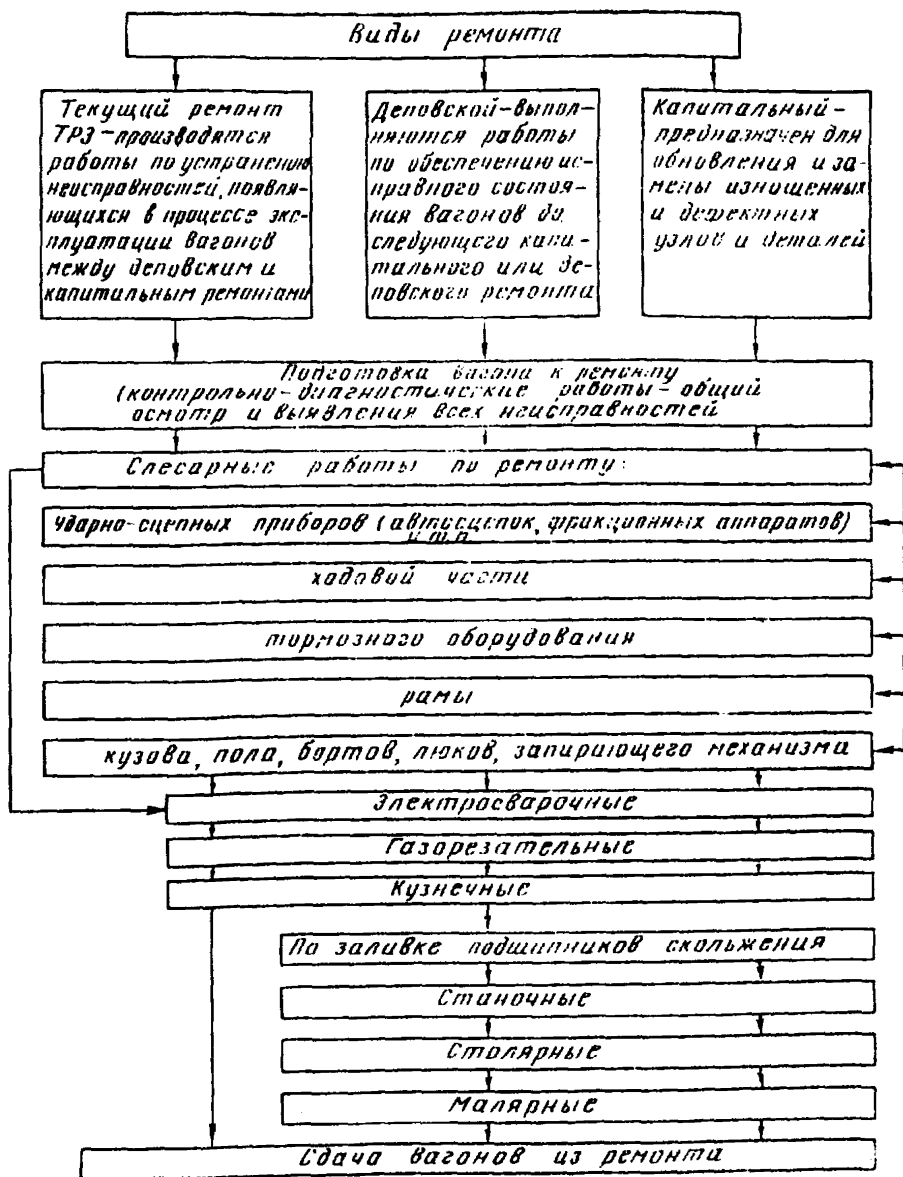 Виды ремонта
Текущий ремонт
ТРЗ-производятся
работы по устранению
неисправностей, появля-
ющихся в процессе экс-
плуатации вагонов
между деповским и
капитальным ремонтами
Деповской-выпол-
няются работы
по обеспечению ис-
правного состоя-
ния вагонов до
следующего капи-
тального или де-
повского ремонта
Капитальный-
предназначен для
обновления и за-
мены изношенных
и дефектных
узлов и деталей
Подготовка вагона к ремонту
(контрольно-диагностические работы-общий
осмотр и выявления всех неисправностей
Слесарные работы по ремонту:
ударно-сцепных приборов (автосцепок, фрикционных аппаратов)
и т.п.
ходовой части
тормозного оборудования
рамы
кузова, пола, бортов, люков, запирающего механизма
Электросварочные
Газорезательные
Кузнечные
По заливке подшипников скольжения
Станочные
Столярные
Малярные
Сдача вагонов из ремонта